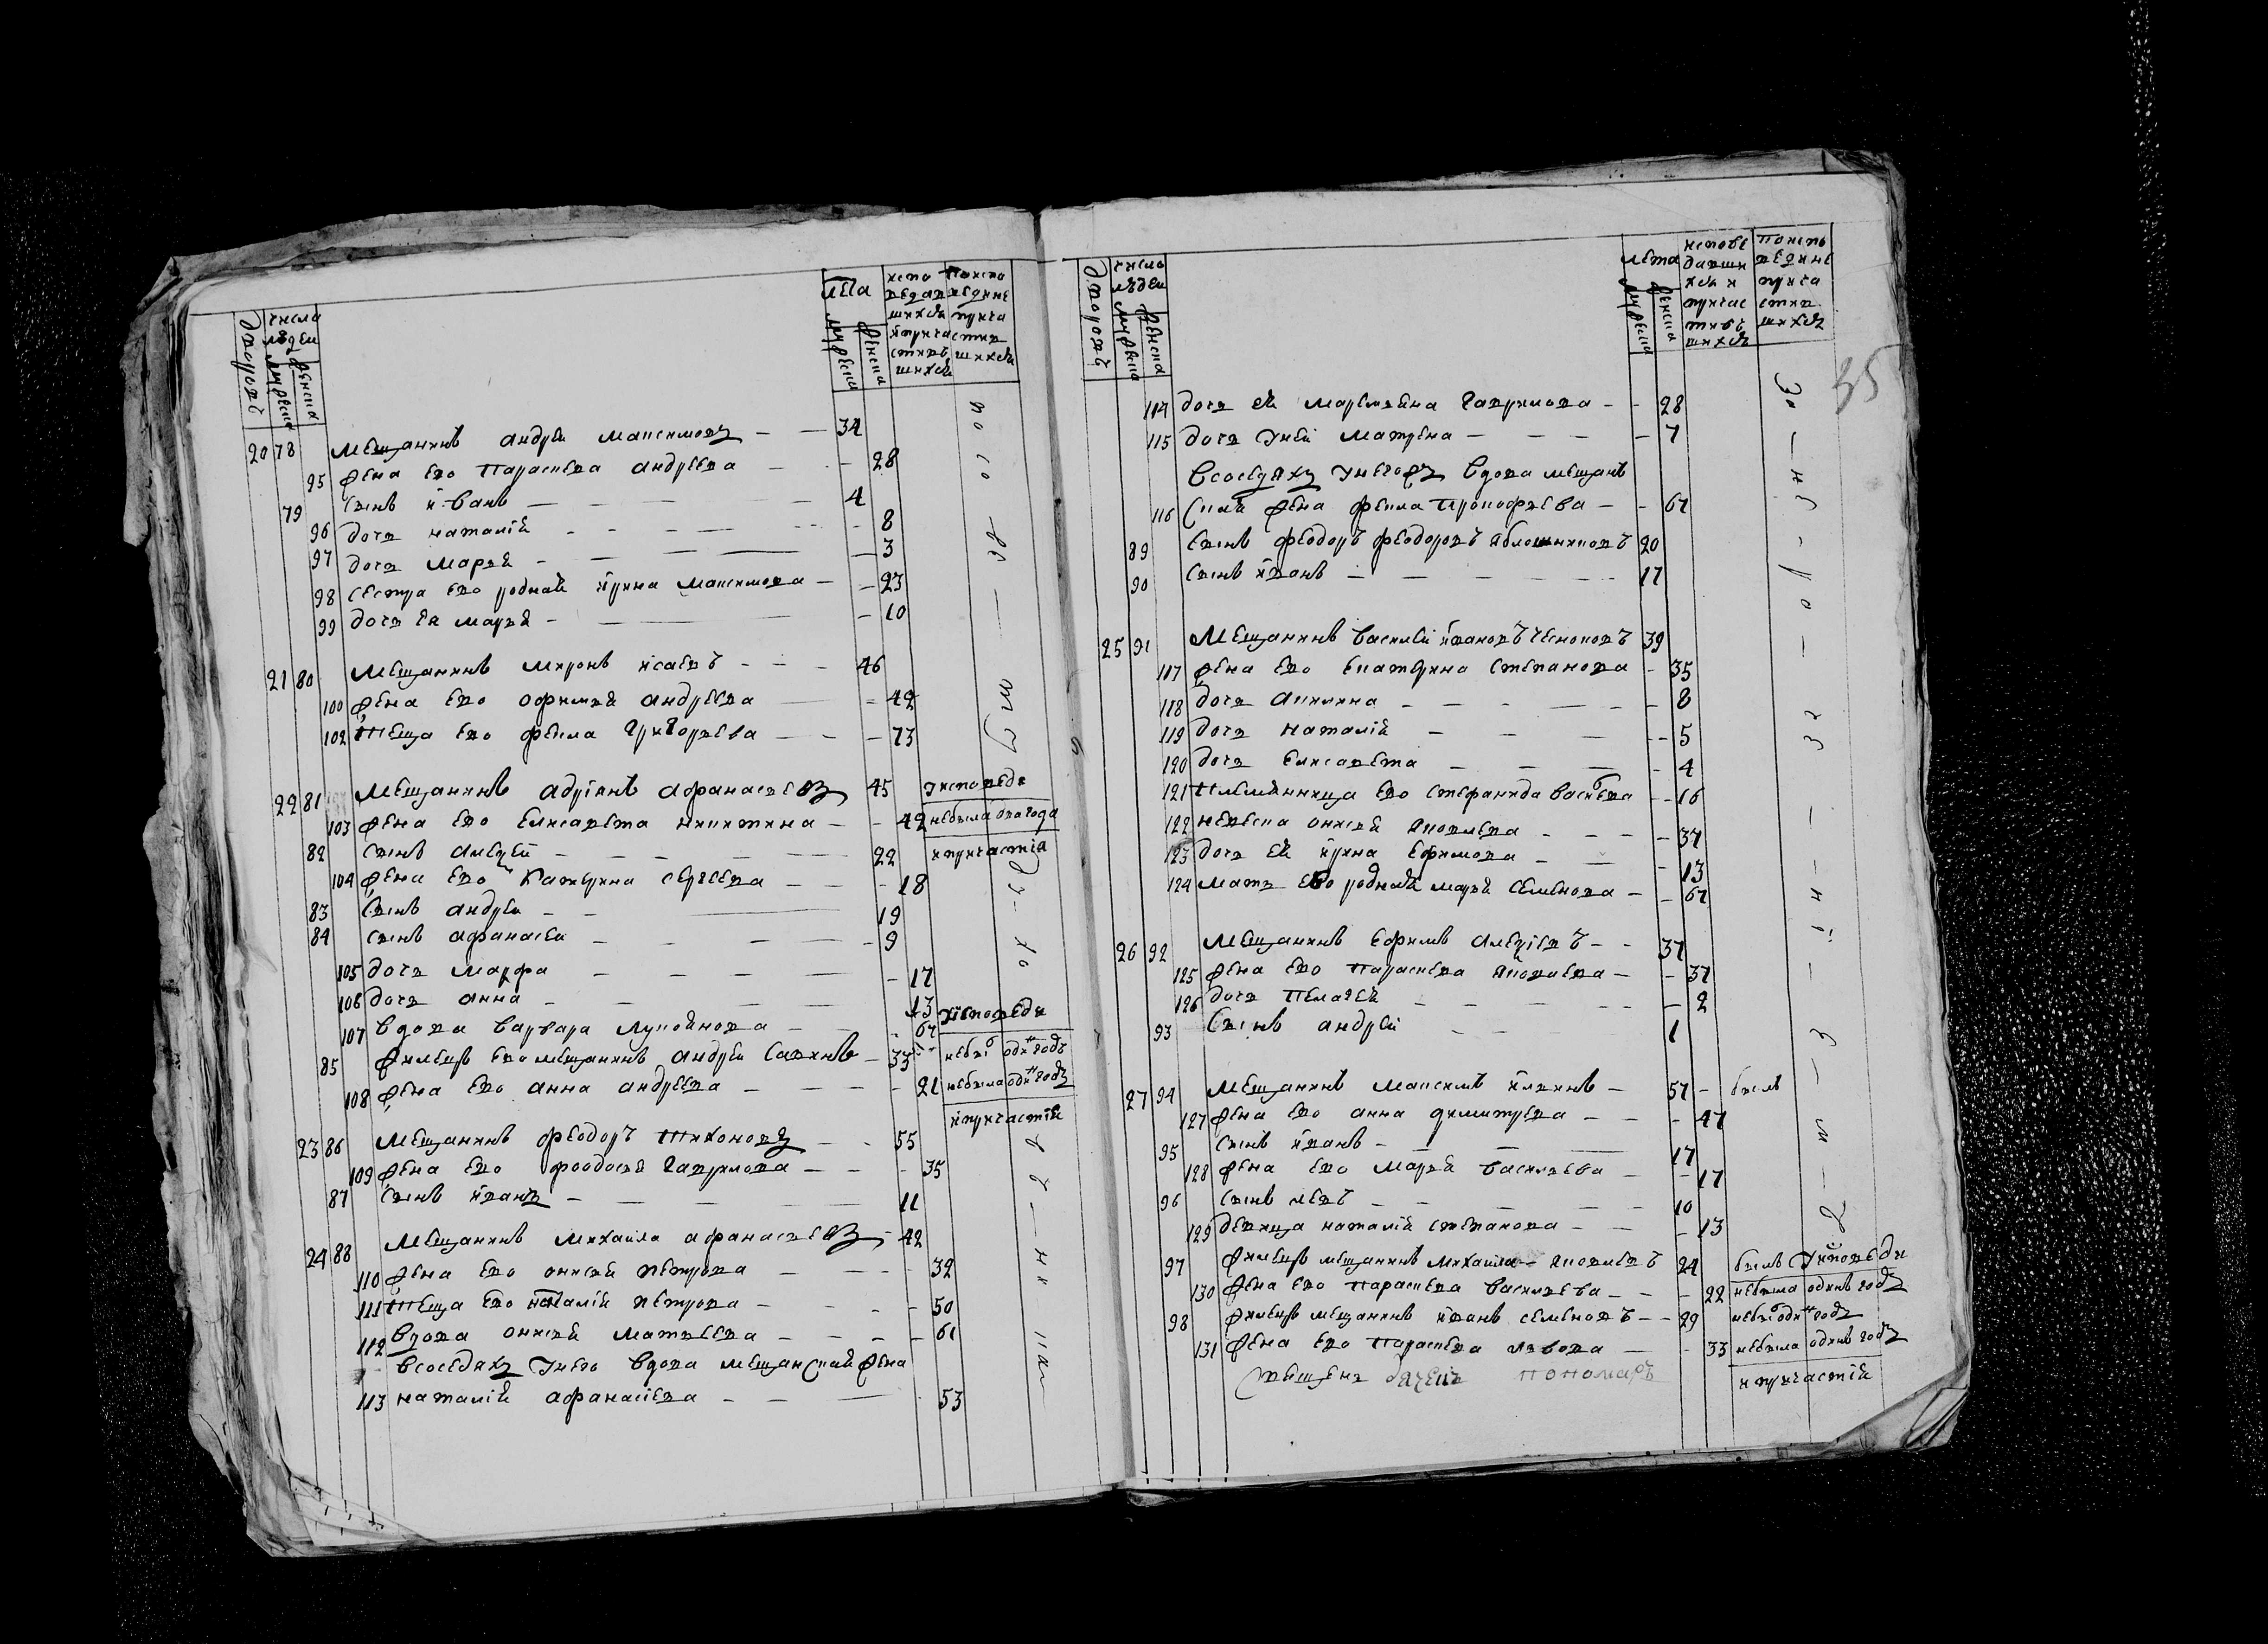 дворовъ
число людеи
мужеска
женска
лета
мужеска
женска
испо ведав шихся и причас тивъ шихся
по испо ведине прича стив шихся
20 78 мещанинъ андреи максимовъ — — 34
95 жена ево параскева андреева — - 28
79 сынъ иванъ — — — 4
96 дочь наталiя - - - - 8
97 дочь марья - — — — 3
98 сестра ево родная ирина максимова — - 23
99 дочь ея марья - — — - 10
21 80 мещанинъ миронъ исаевъ - - - 46
100 жена ево офимья андреева — - 42
102 теща ево фекла григорьева — - — 73
22 81 мещанинъ адрiянъ афанасьевъ 45 у исповеди
103 жена ево елисавета никитина — - 42 небыла два года
82 сынъ алексей - — — — 22 и причастiя
104 жена ево катерина сергеева - - - 18
83 сынъ андреи - - — 19
84 сынъ афанасеи - - — — 9
105 дочь марфа - - - — 17
106 дочь анна - — — — 13
107 вдова варвара лукоянова — - 67 у исповеди
85 жилецъ ево мещанинъ андреи савинъ — 33 небылъ одинъ годъ
108 жена ево анна андреева — - - - 21 небыла одинъ годъ
и причастiя
23 86 мещанинъ феодоръ тихоновъ - - 55
109 жена ево феодосья гаврилова — - - 35
87 сынъ иванъ - — — — 11
24 88 мещанинъ михаила афанасьевъ - 42
110 жена ево онисья петрова - - - 32
111 теща ево наталiя петрова - - - 50
112 вдова онисья матвеева - - - - 61
всоседяхъ унево вдова мещанская жена
113 наталiя афанасiева - - — - 53
по со — ве — ту — вз — хо — дя — ни — ми
дворовъ
число людеи
мужеска
женска
лета
мужеска
женска
исповедавши хся и причас тивъ шихся
по исповедине прича стив шихся
35
114 дочь ея маремьяна гаврилова - - 28
115 дочь унея матрена - - - - 7
всоседяхъ унегожъ вдова мещанъ
116 ская жена фекла прокофьева — - 67
89 сынъ феодоръ феодоровъ яблошниковъ 20
90 сынъ иванъ — — — - - 17
25 91 мещанинъ василеи ивановъ чесноковъ 39
117 жена ево екатерина степанова - 35
118 дочь акилина - - - — - 8
119 дочь наталiя - - - - 5
120 дочь елисавета - - - - 4
121 племянница ево стефанида васильева - - 16
122 невеска онисья яковлева - - - - 37
123 дочь ея ирина ефимова - - - 13
124 мать ево родная марья семенова — - 67
26 92 мещанинъ ефимъ алексiевъ - - 37
125 жена ево параскева яковлева — - 37
126 дочь пелагея - - - - - 2
93 сынъ андреи - - - 1
27 94 мещанинъ максимъ илиинъ — 57 - былъ
127 жена ево анна димитрева — - - 47
95 сынъ иванъ - - — — 17
128 жена ево марья васильева — - 17
96 сынъ левъ - - - - - 10
129 девица наталiя степанова — - - 13
97 жилецъ мещанинъ михаила яковлевъ 24 былъ у исповеди
130 жена ево параскева васильева - - - 22 небыла одинъ годъ
98 жилецъ мещанинъ иванъ семеновъ - - 29 небылъ одинъ годъ
131 жена ево параскева львова — - 33 небыла одинъ годъ
и причастiя
пономарь